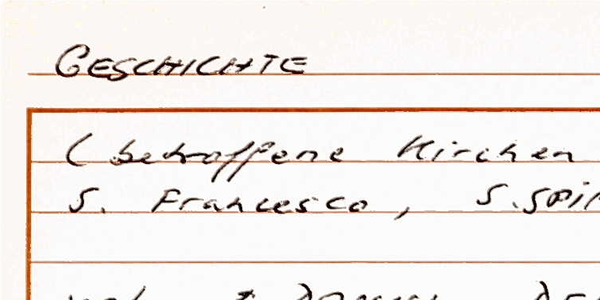 GESCHICHTE
(betroffene Kirchen
S. Francesco, S. Spir